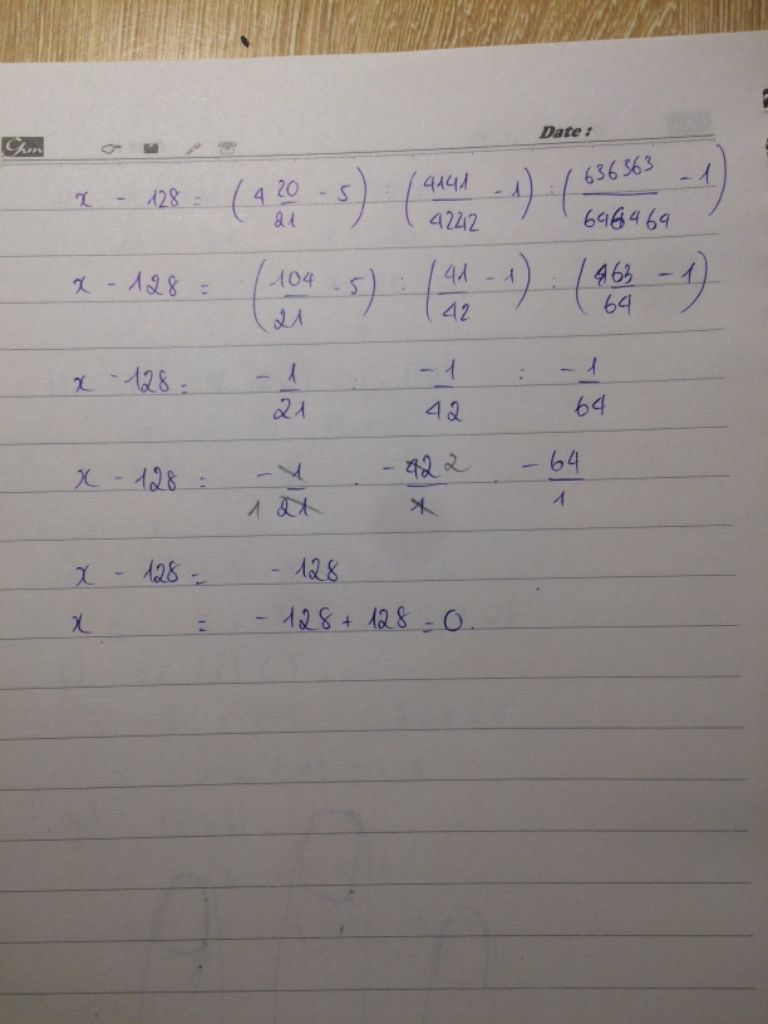 Date :
x - 128 = (4 20/21 - 5) : (4141/4242 - 1) : (636363/646464 - 1)
x - 128 = (104/21 - 5) : (41/42 - 1) : (63/64 - 1)
x - 128 = -1/21 : -1/42 : -1/64
x - 128 = -1/21 1 . -42/1 2 . -64/1
x - 128 = -128
x = -128 + 128 = 0.